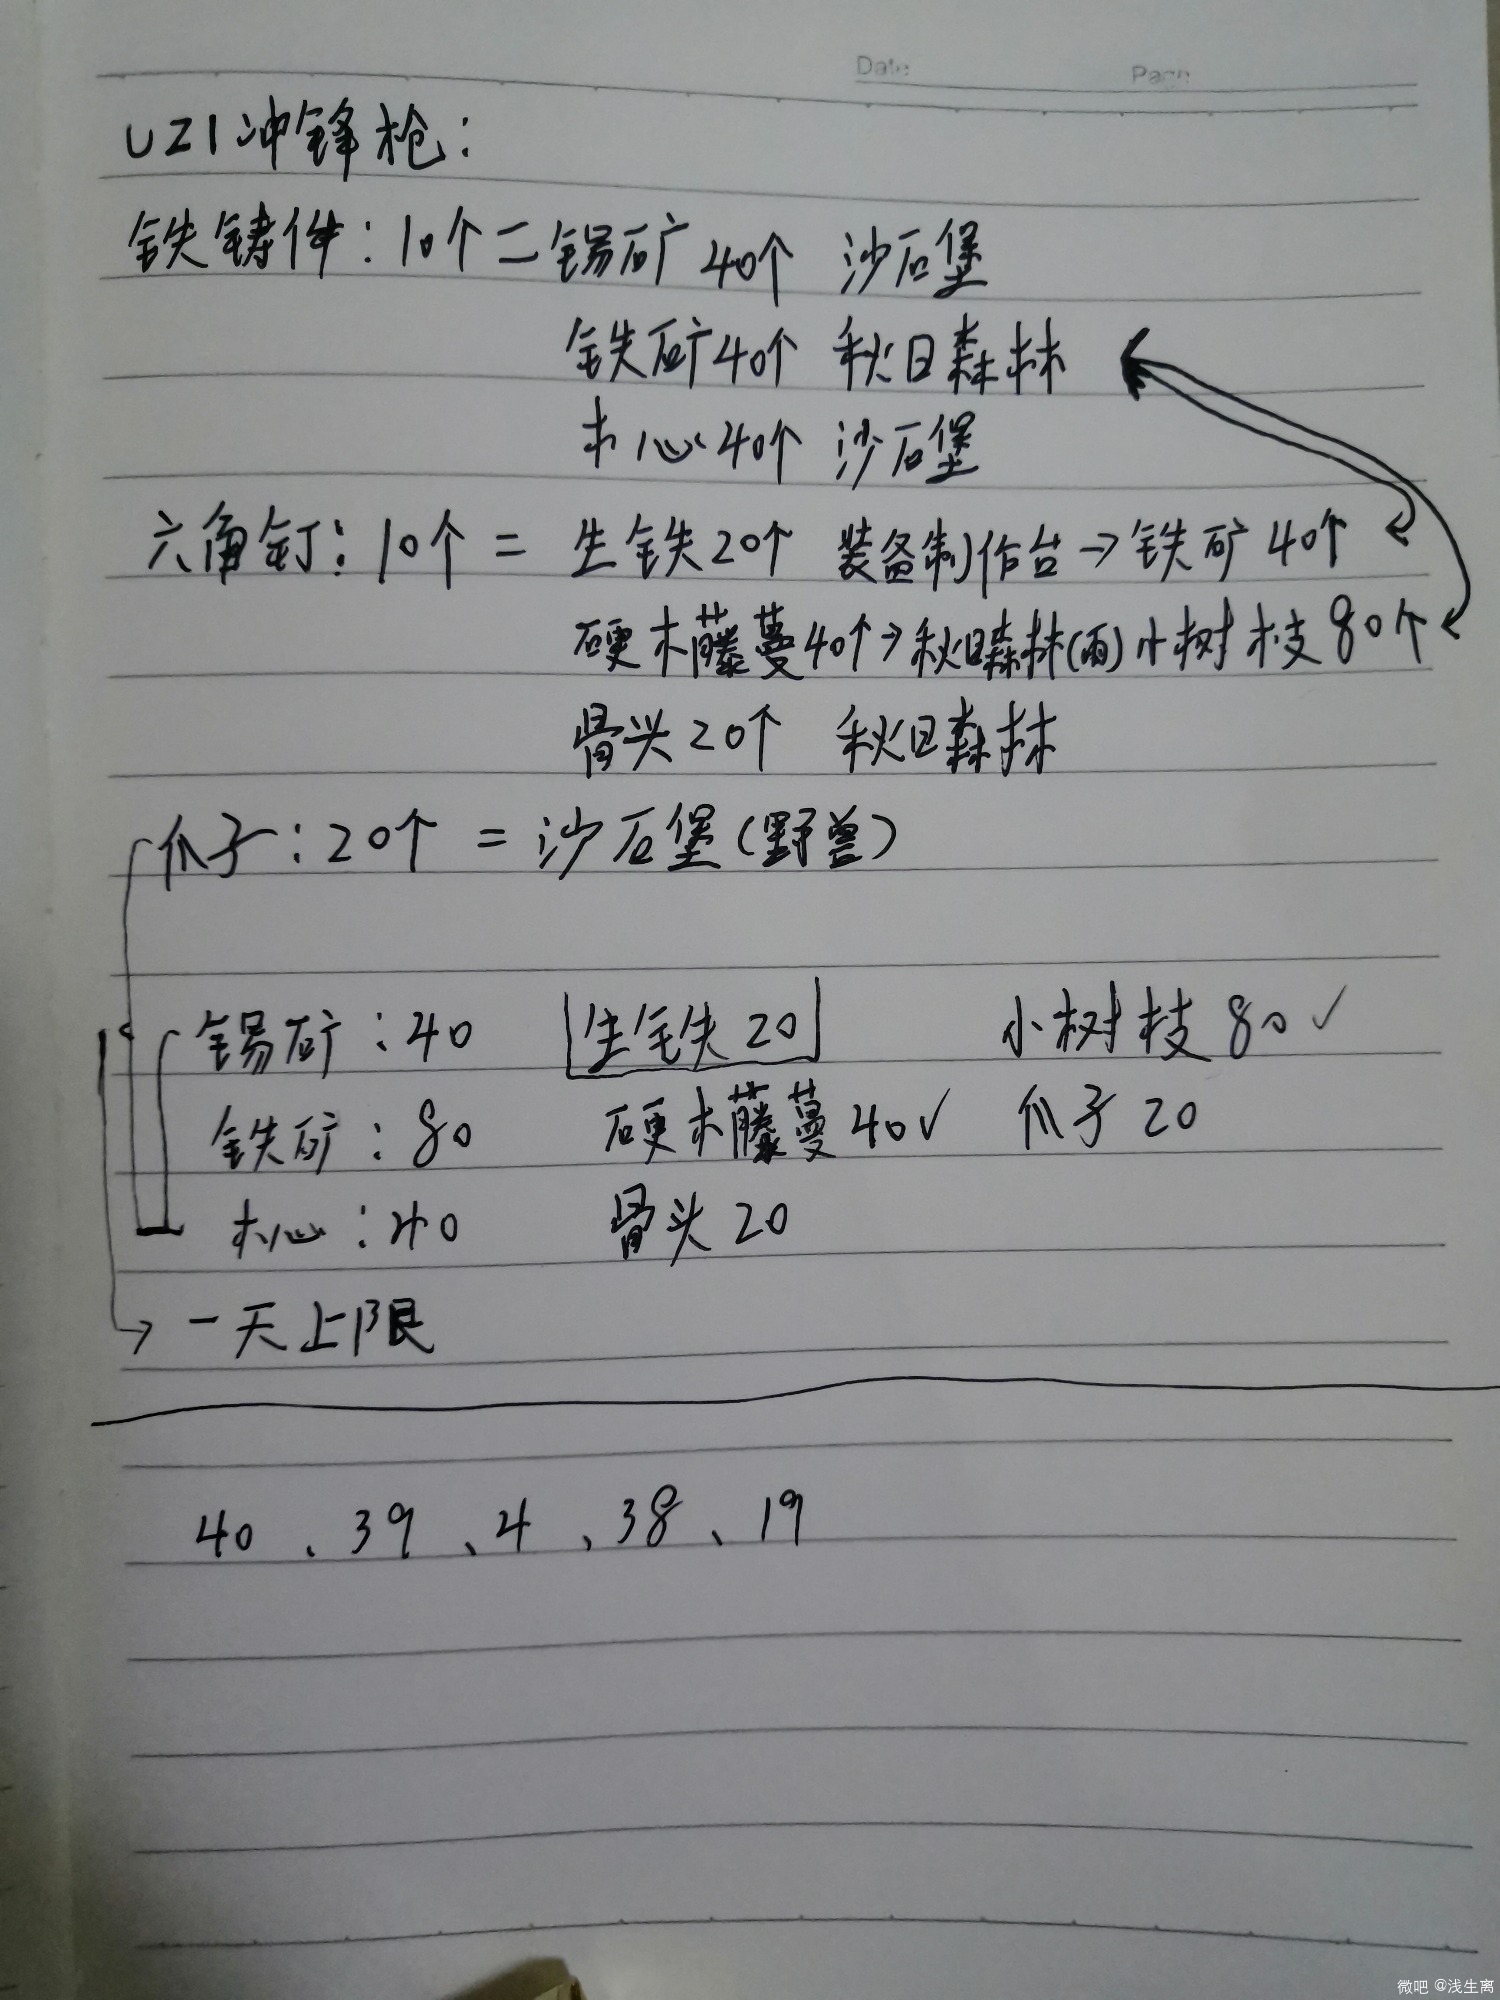 Date Page
UZI冲锋枪:
铁铸件:10个=锡矿40个 沙石堡
铁矿40个 秋日森林
木心40个 沙石堡
六角钉:10个=生铁20个 装备制作台→铁矿40个
硬木藤蔓40个→秋日森林(雨)小树枝80个
骨头20个 秋日森林
爪子:20个=沙石堡(野兽)
锡矿:40 生铁20 小树枝80✓
铁矿:80 硬木藤蔓40✓ 爪子20
木心:40 骨头20
→一天上限
40、39、4、38、19
微吧 @浅生离